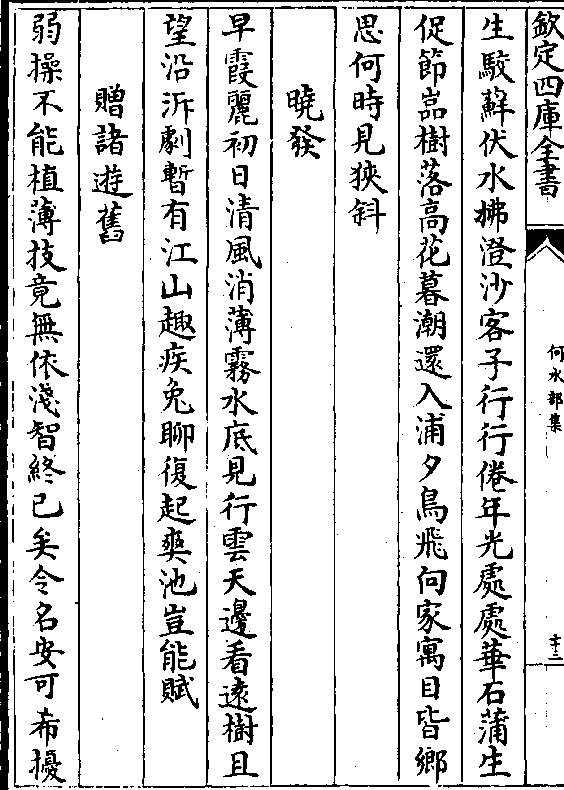 欽定四庫全書
何水部集
十三
生駮蘚伏水拂澄沙客子行行倦年光處處華石蒲生
促節嵓樹落高花暮潮還入浦夕鳥飛向家寓目皆鄉
思何時見狹斜
曉發
早霞麗初日清風消薄霧水底見行雲天邊看遠樹且
望沿泝劇暫有江山趣疾兔聊復起爽池豈能賦
贈諸遊舊
弱操不能植薄技竟無依淺智終已矣令名安可希擾